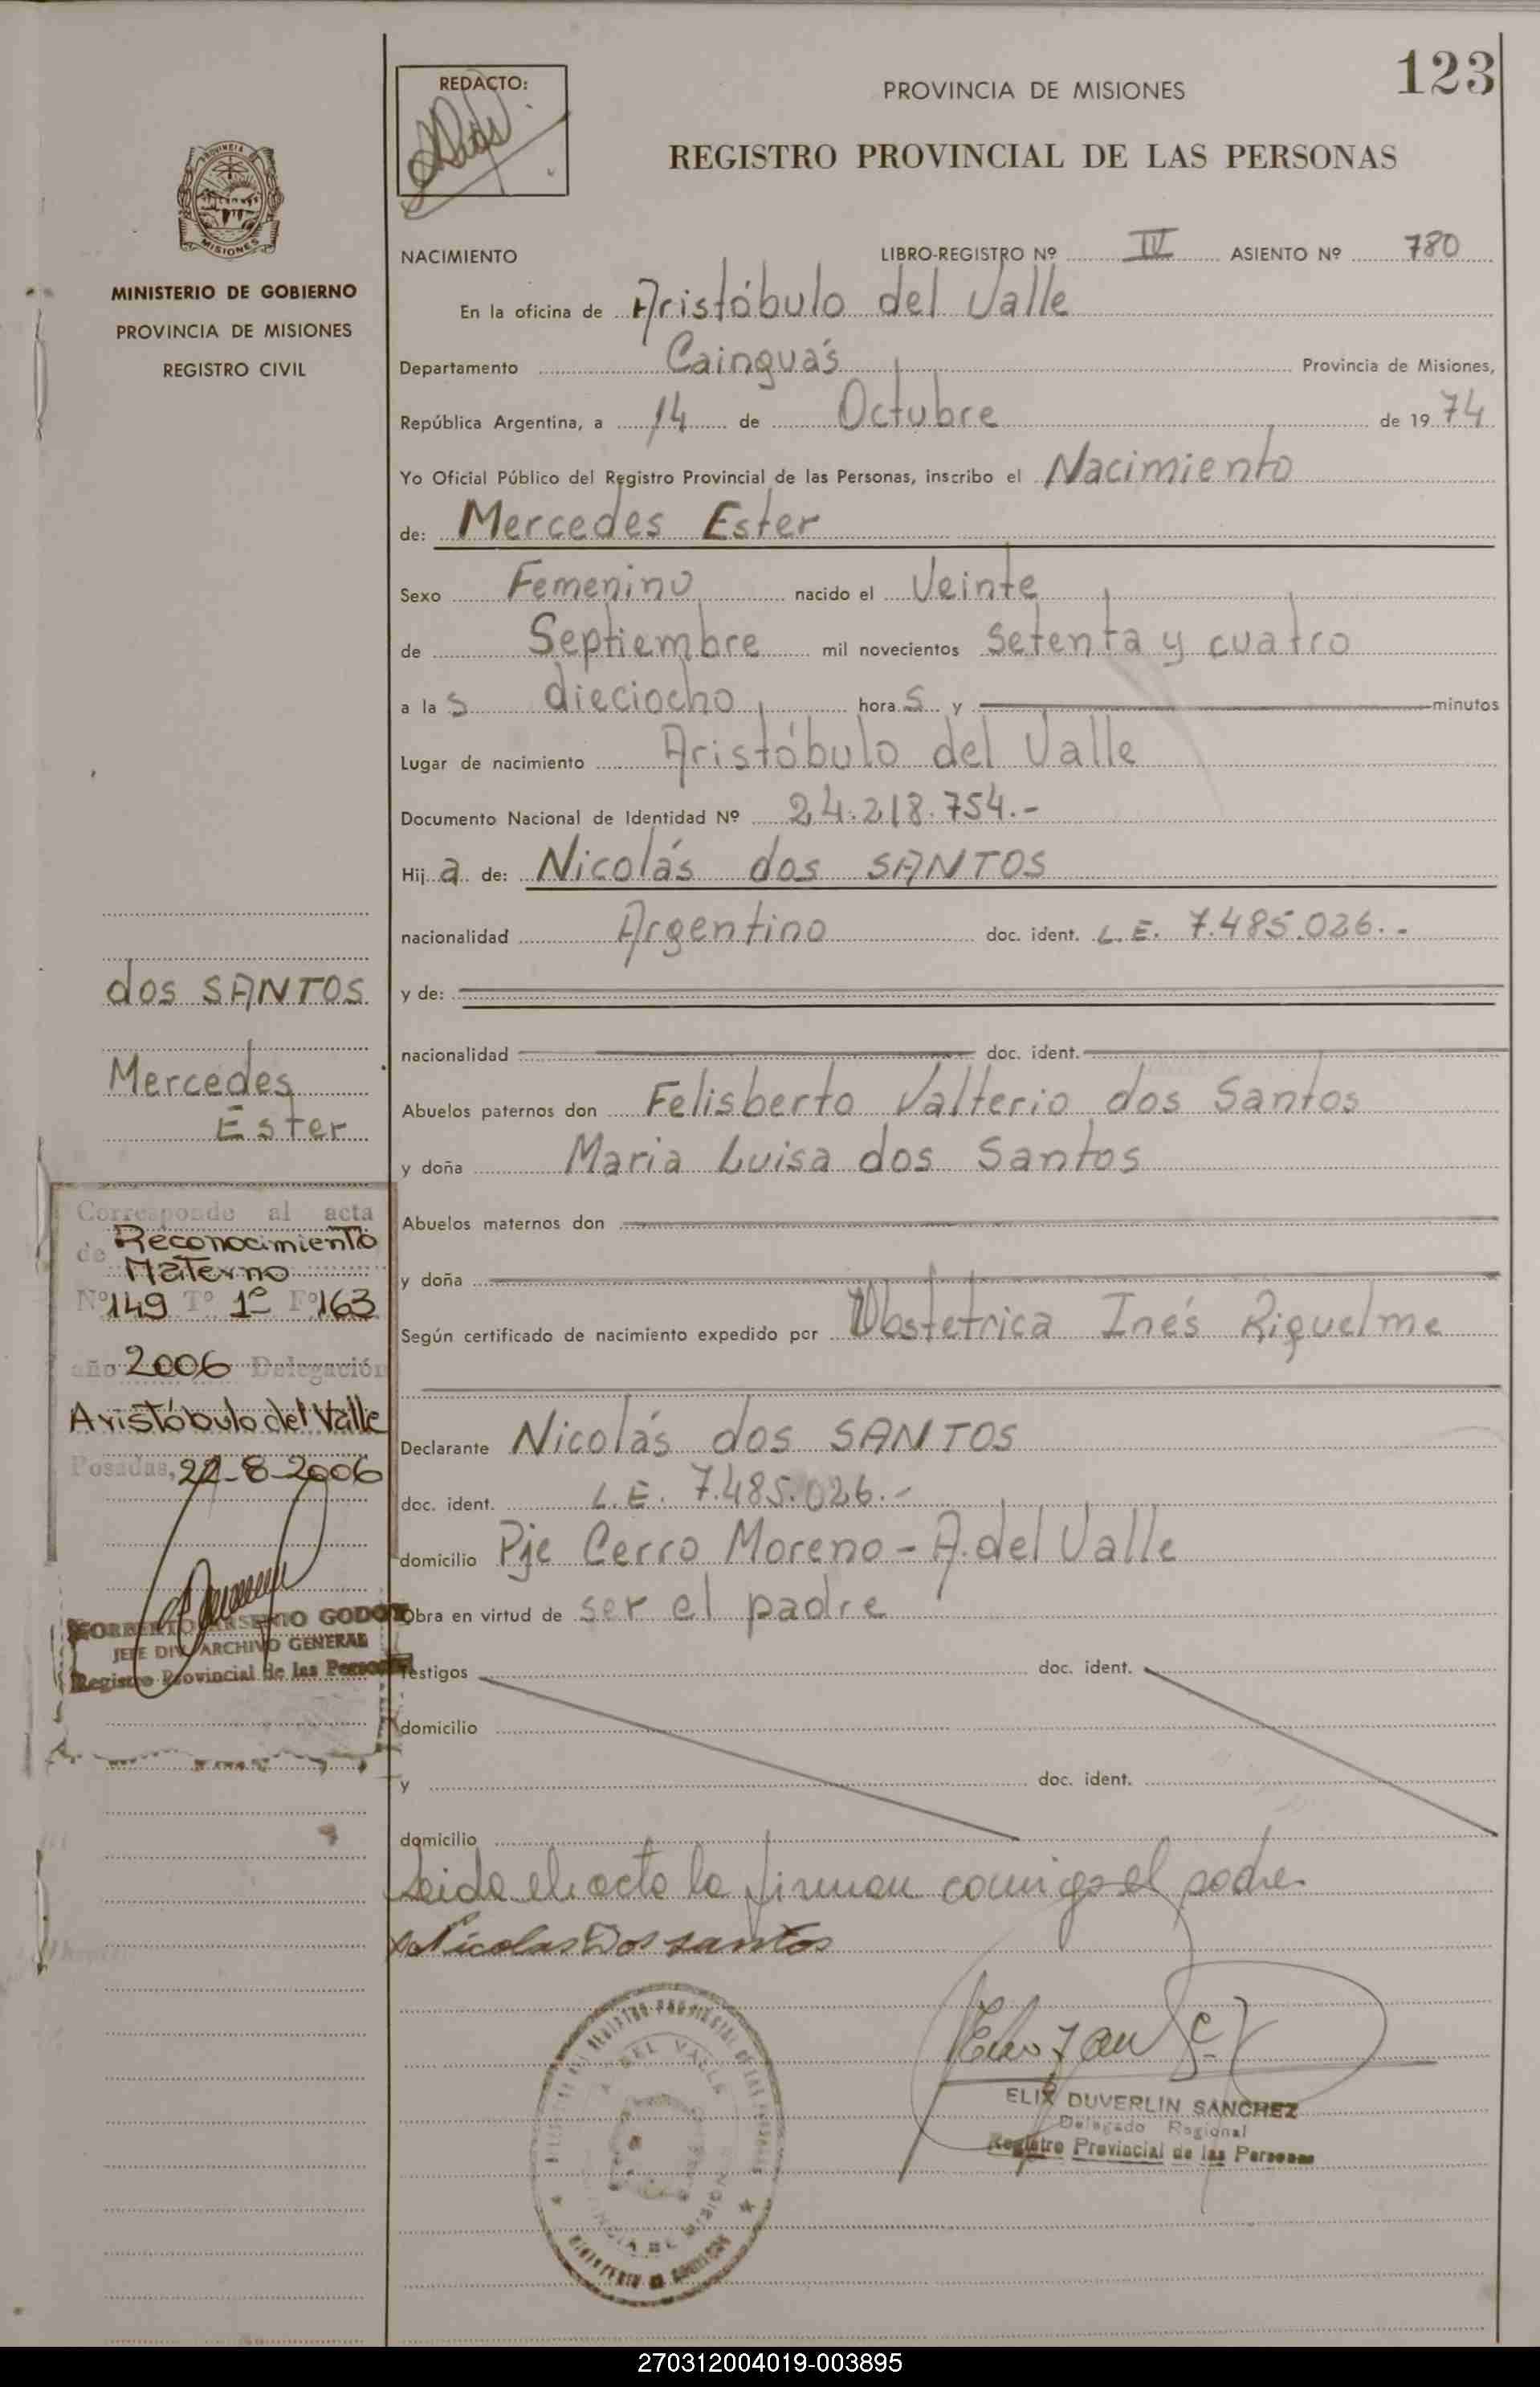 123
REDACTO:
PROVINCIA DE MISIONES
REGISTRO PROVINCIAL DE LAS PERSONAS
PROVINCIA
MISIONES
MINISTERIO DE GOBIERNO
PROVINCIA DE MISIONES
REGISTRO CIVIL
NACIMIENTO LIBRO-REGISTRO Nº IV ASIENTO Nº 780
En la oficina de Aristóbulo del Valle
Departamento Cainguás Provincia de Misiones,
República Argentina, a 14 de Octubre de 1974
Yo Oficial Público del Registro Provincial de las Personas, inscribo el Nacimiento
de: Mercedes Ester
Sexo Femenino nacido el Veinte
de Septiembre mil novecientos setenta y cuatro
a las dieciocho horas y minutos
Lugar de nacimiento Aristóbulo del Valle
Documento Nacional de Identidad Nº 24.218.754.-
Hija de: Nicolás dos SANTOS
nacionalidad Argentino doc. ident. L.E. 7.485.026.-
y de:
nacionalidad doc. ident.
Abuelos paternos don Felisberto Valterio dos Santos
y doña Maria Luisa dos Santos
Abuelos maternos don
y doña
Según certificado de nacimiento expedido por Obstetrica Inés Riquelme
Declarante Nicolás dos SANTOS
doc. ident. L.E. 7.485.026.-
domicilio Pje Cerro Moreno - A. del Valle
Obra en virtud de ser el padre
Testigos doc. ident.
domicilio
y doc. ident.
domicilio
Leida el acta la firman comigo el padre
Nicolas Dos santos
ELIX DUVERLIN SANCHEZ
Delegado Regional
Registro Provincial de las Personas
dos SANTOS
Mercedes
Ester
Corresponde al acta
de Reconocimiento
Materno
Nº 149 Tº 1º Fº 163
año 2006 Delegación
Aristóbulo del Valle
Posadas, 22-8-2006
NORBERTO ARSENIO GODOY
JEFE DIV. ARCHIVO GENERAL
Registro Provincial de las Personas
270312004019-003895